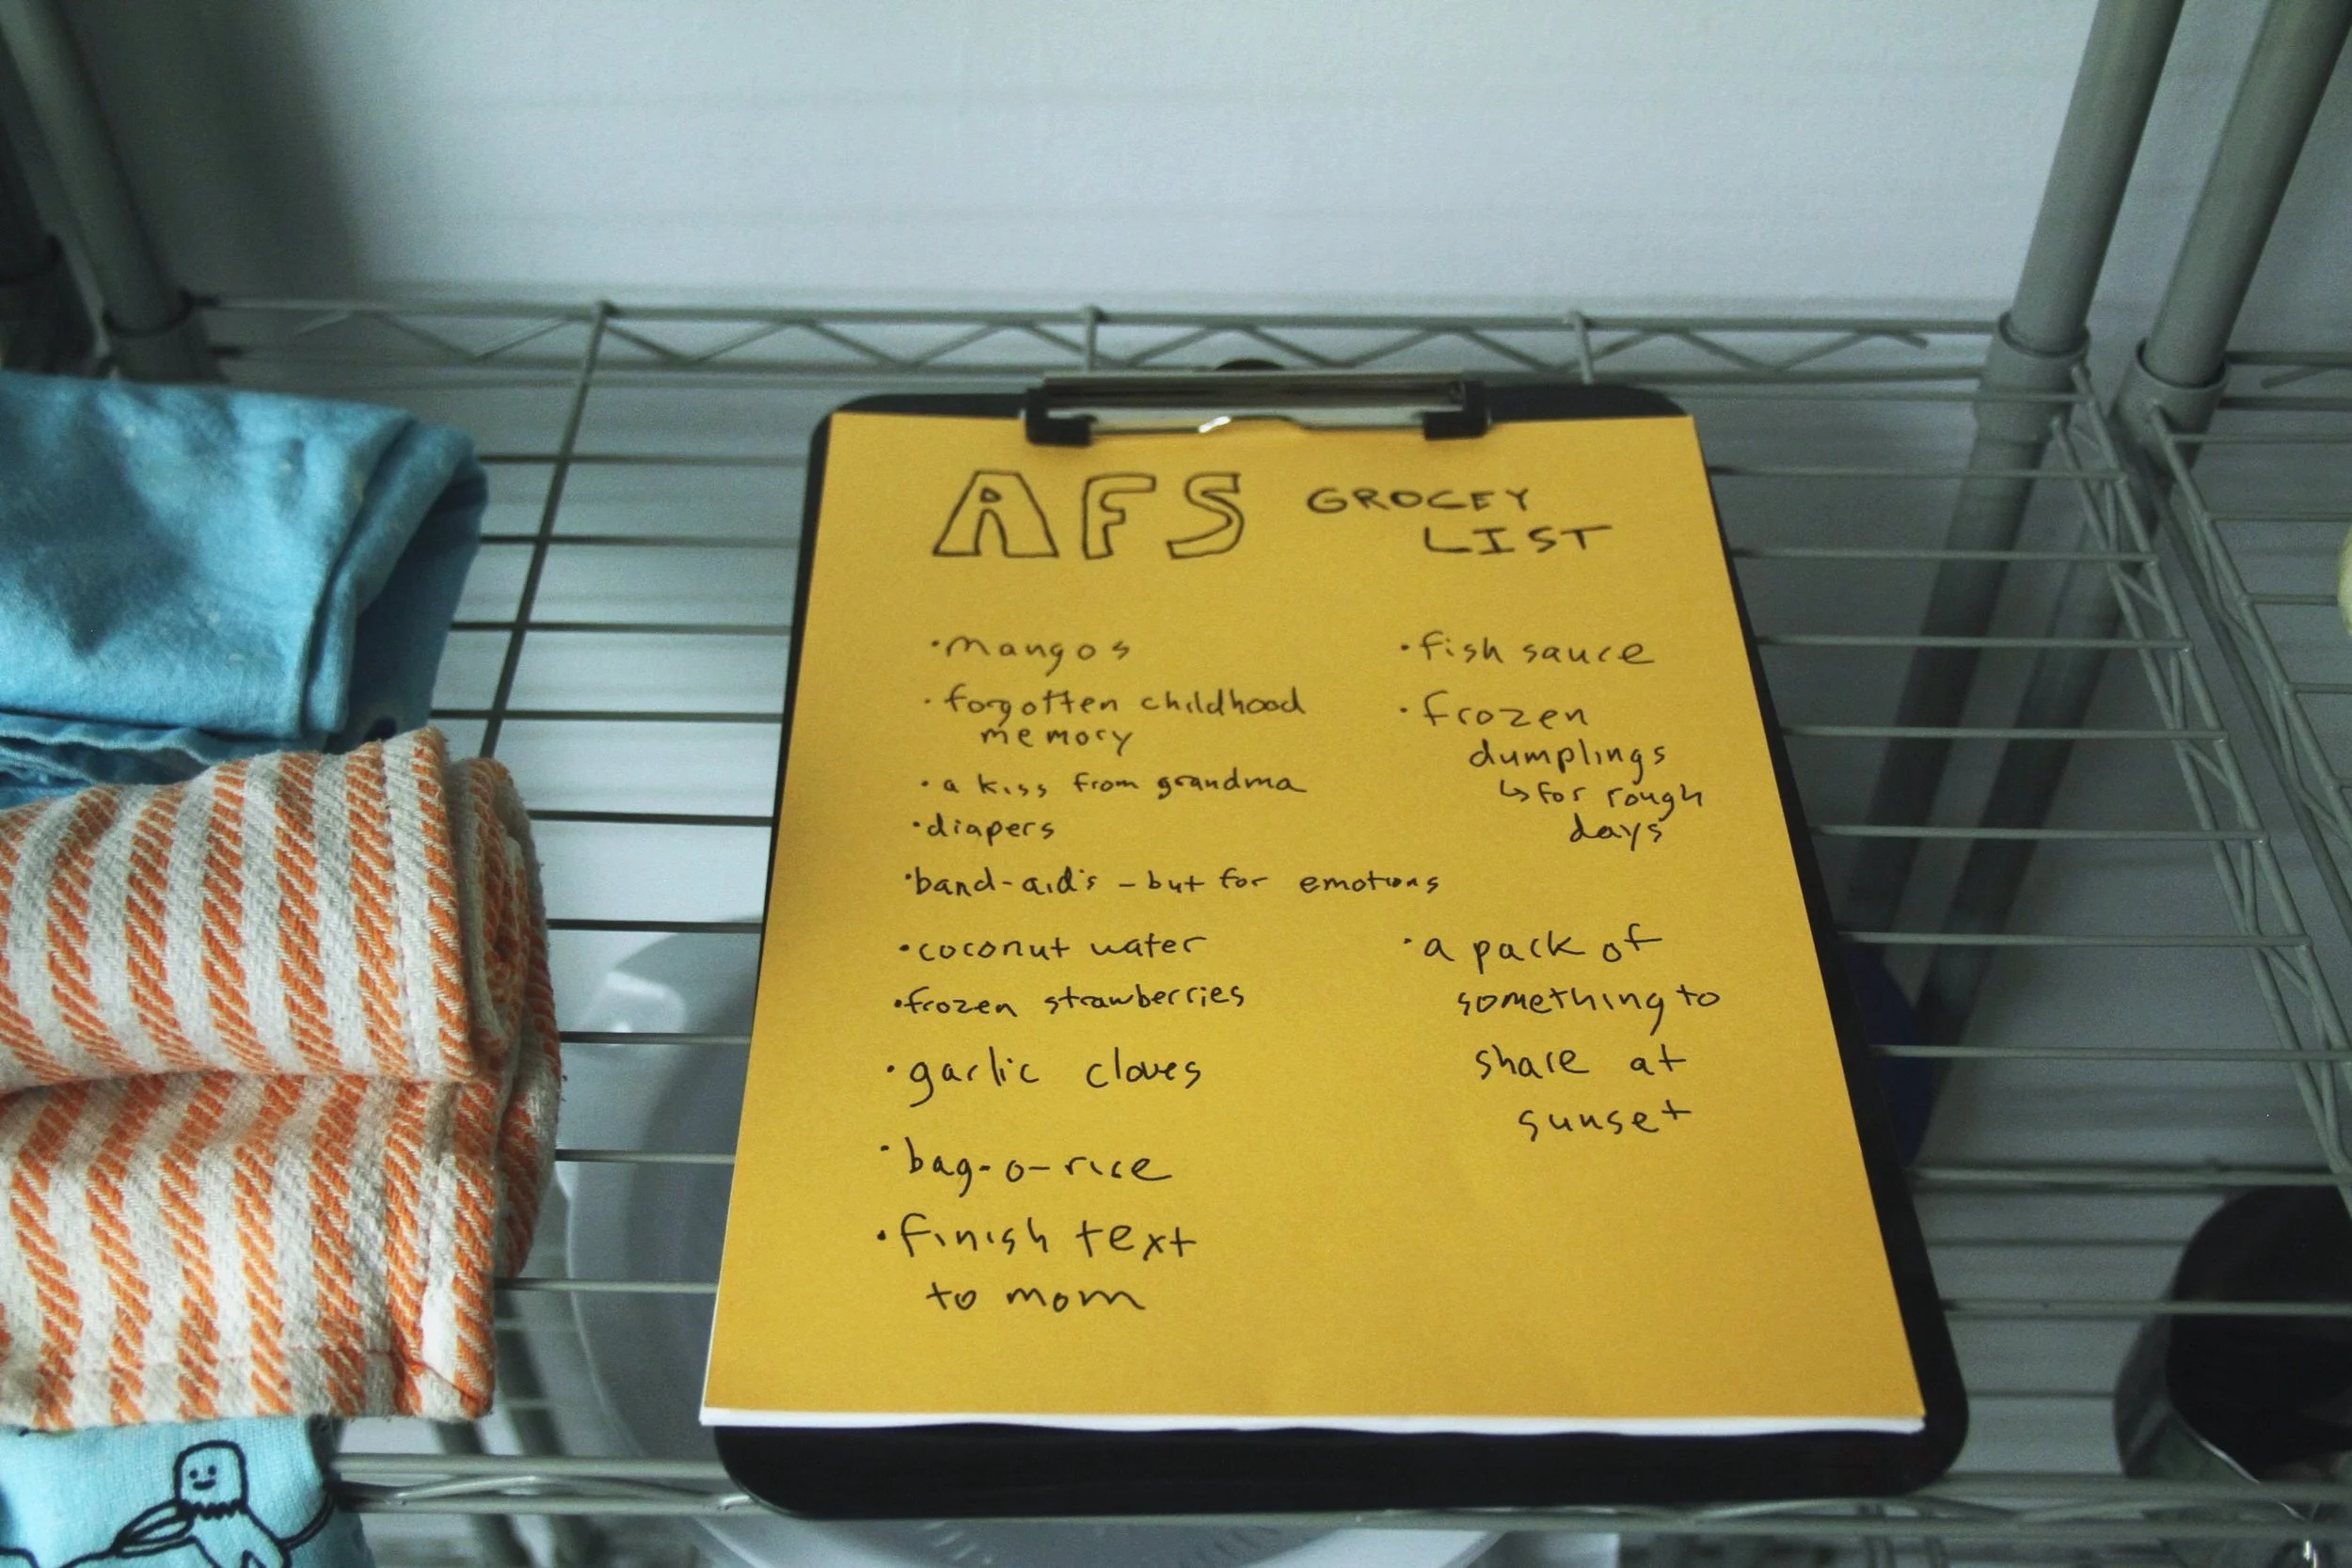 AFS GROCEY
LIST
• mangos
• forgotten childhood
memory
• a kiss from grandma
• diapers
• band-aid's - but for emotions
• coconut water
• frozen strawberries
• garlic cloves
• bag-o-rice
• finish text
to mom
• fish sauce
• frozen
dumplings
↳ for rough
days
• a pack of
something to
share at
sunset